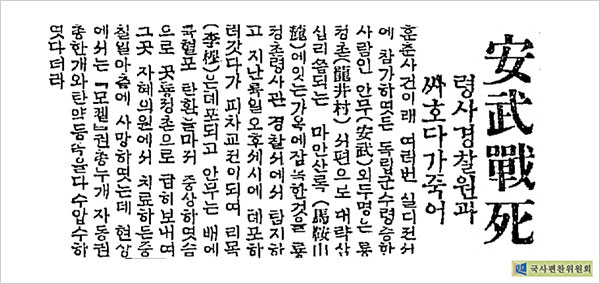 安武戰死
령사경찰원과
싸호다가죽어
훈춘사건이래 여러번
에 참가하엿든 독립군수령승한
사람인 안무(安武)외두명은 룡
청촌(龍井村)서편으로 대략삼
십리쯤되는 마안산록(馬鞍山
麓)에잇는가옥에잠복한것을 룡
정촌령사관 경찰서에서 탐지하
고 지난륙일오후세시에 톄포하
러갓다가 피차교전이되여
은톄포되고 안무는 배에
륙혈포 탄환을마저 중상하엿슴
으로 곳룡정촌으로 급히보내여
그곳 자혜의원에서 치료하든중
칠일아츰에 사망하엿는데 현장
에서는『모젤』권총두개 자동권
총한개와탄약등속을다수압수하
엿다더라
국사편찬위원회